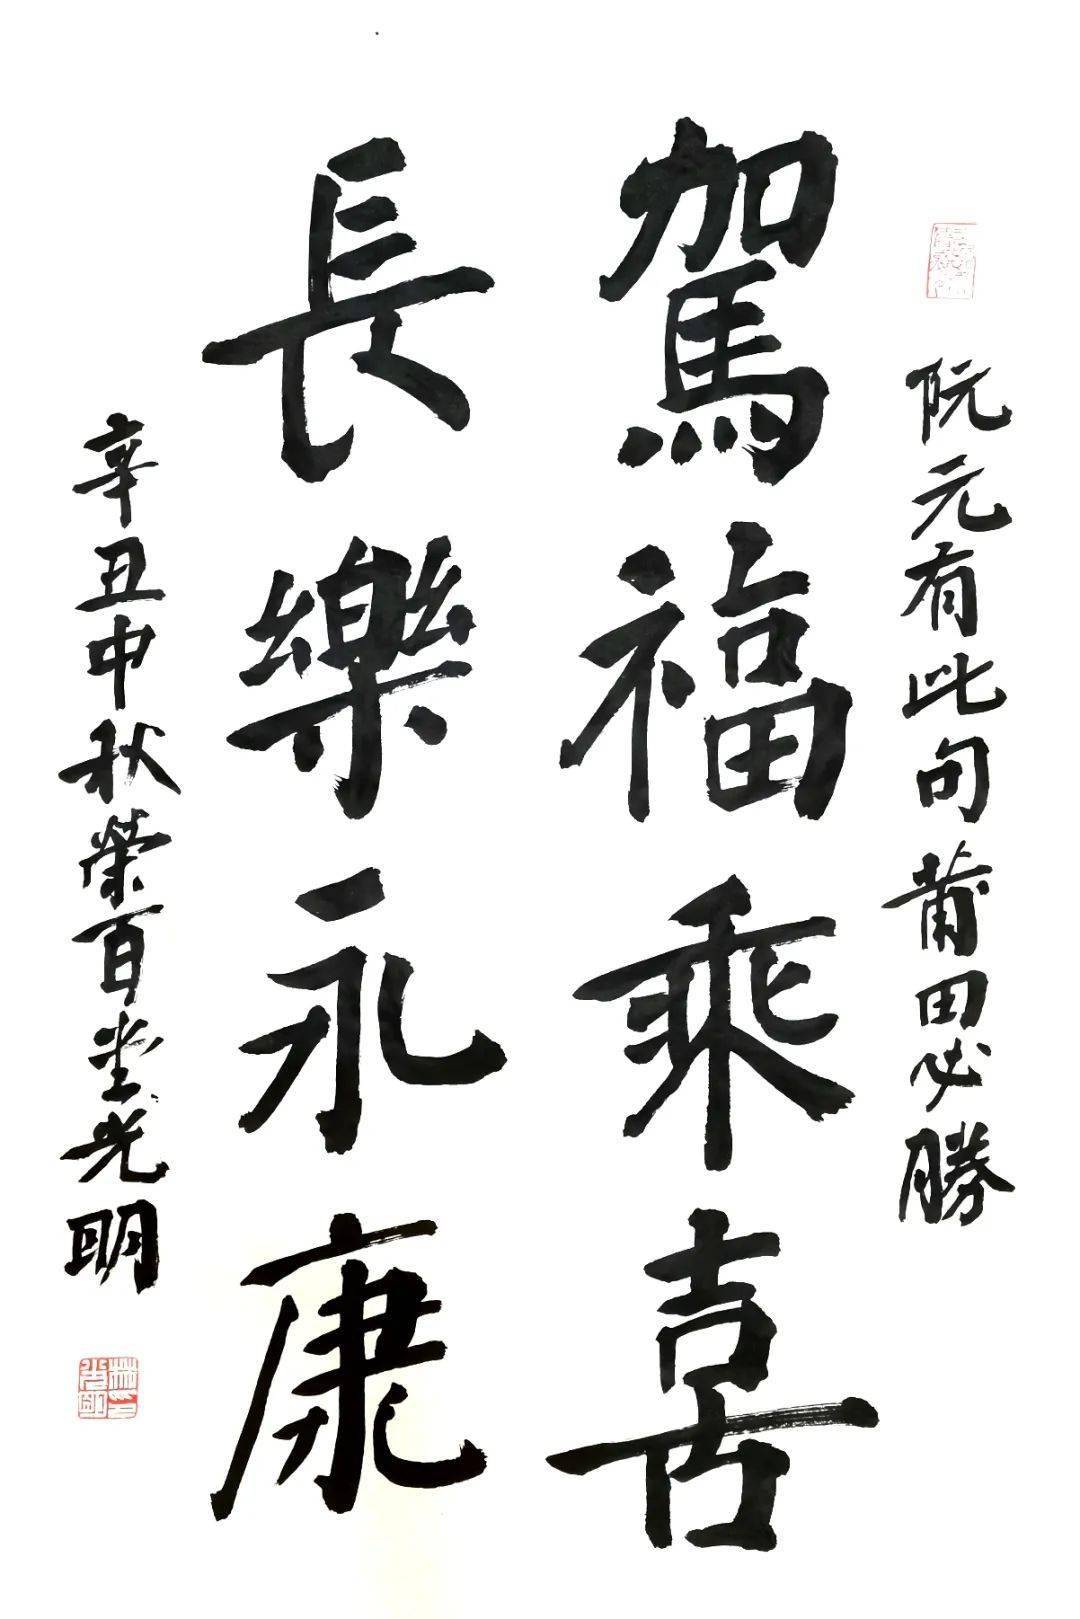 阮元有此句莆田必勝
駕福乘喜
長樂永康
辛丑中秋榮百堂光明